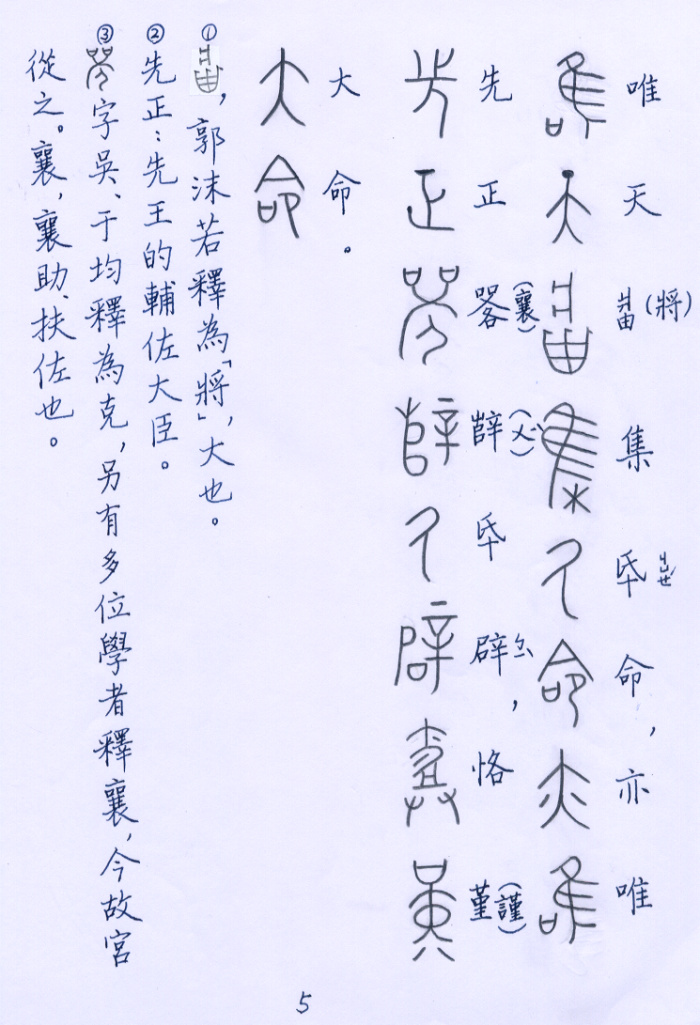 唯天(將)集氒ㄐㄩㄝˊ命,亦唯
先正(襄)辥(乂)氒辟,恪堇(謹)
大命。
①,郭沫若釋為「將」,大也。
②先正:先王的輔佐大臣。
③字吳、于均釋為克,另有多位學者釋襄,今故宮
從之。襄,襄助、扶佐也。
5